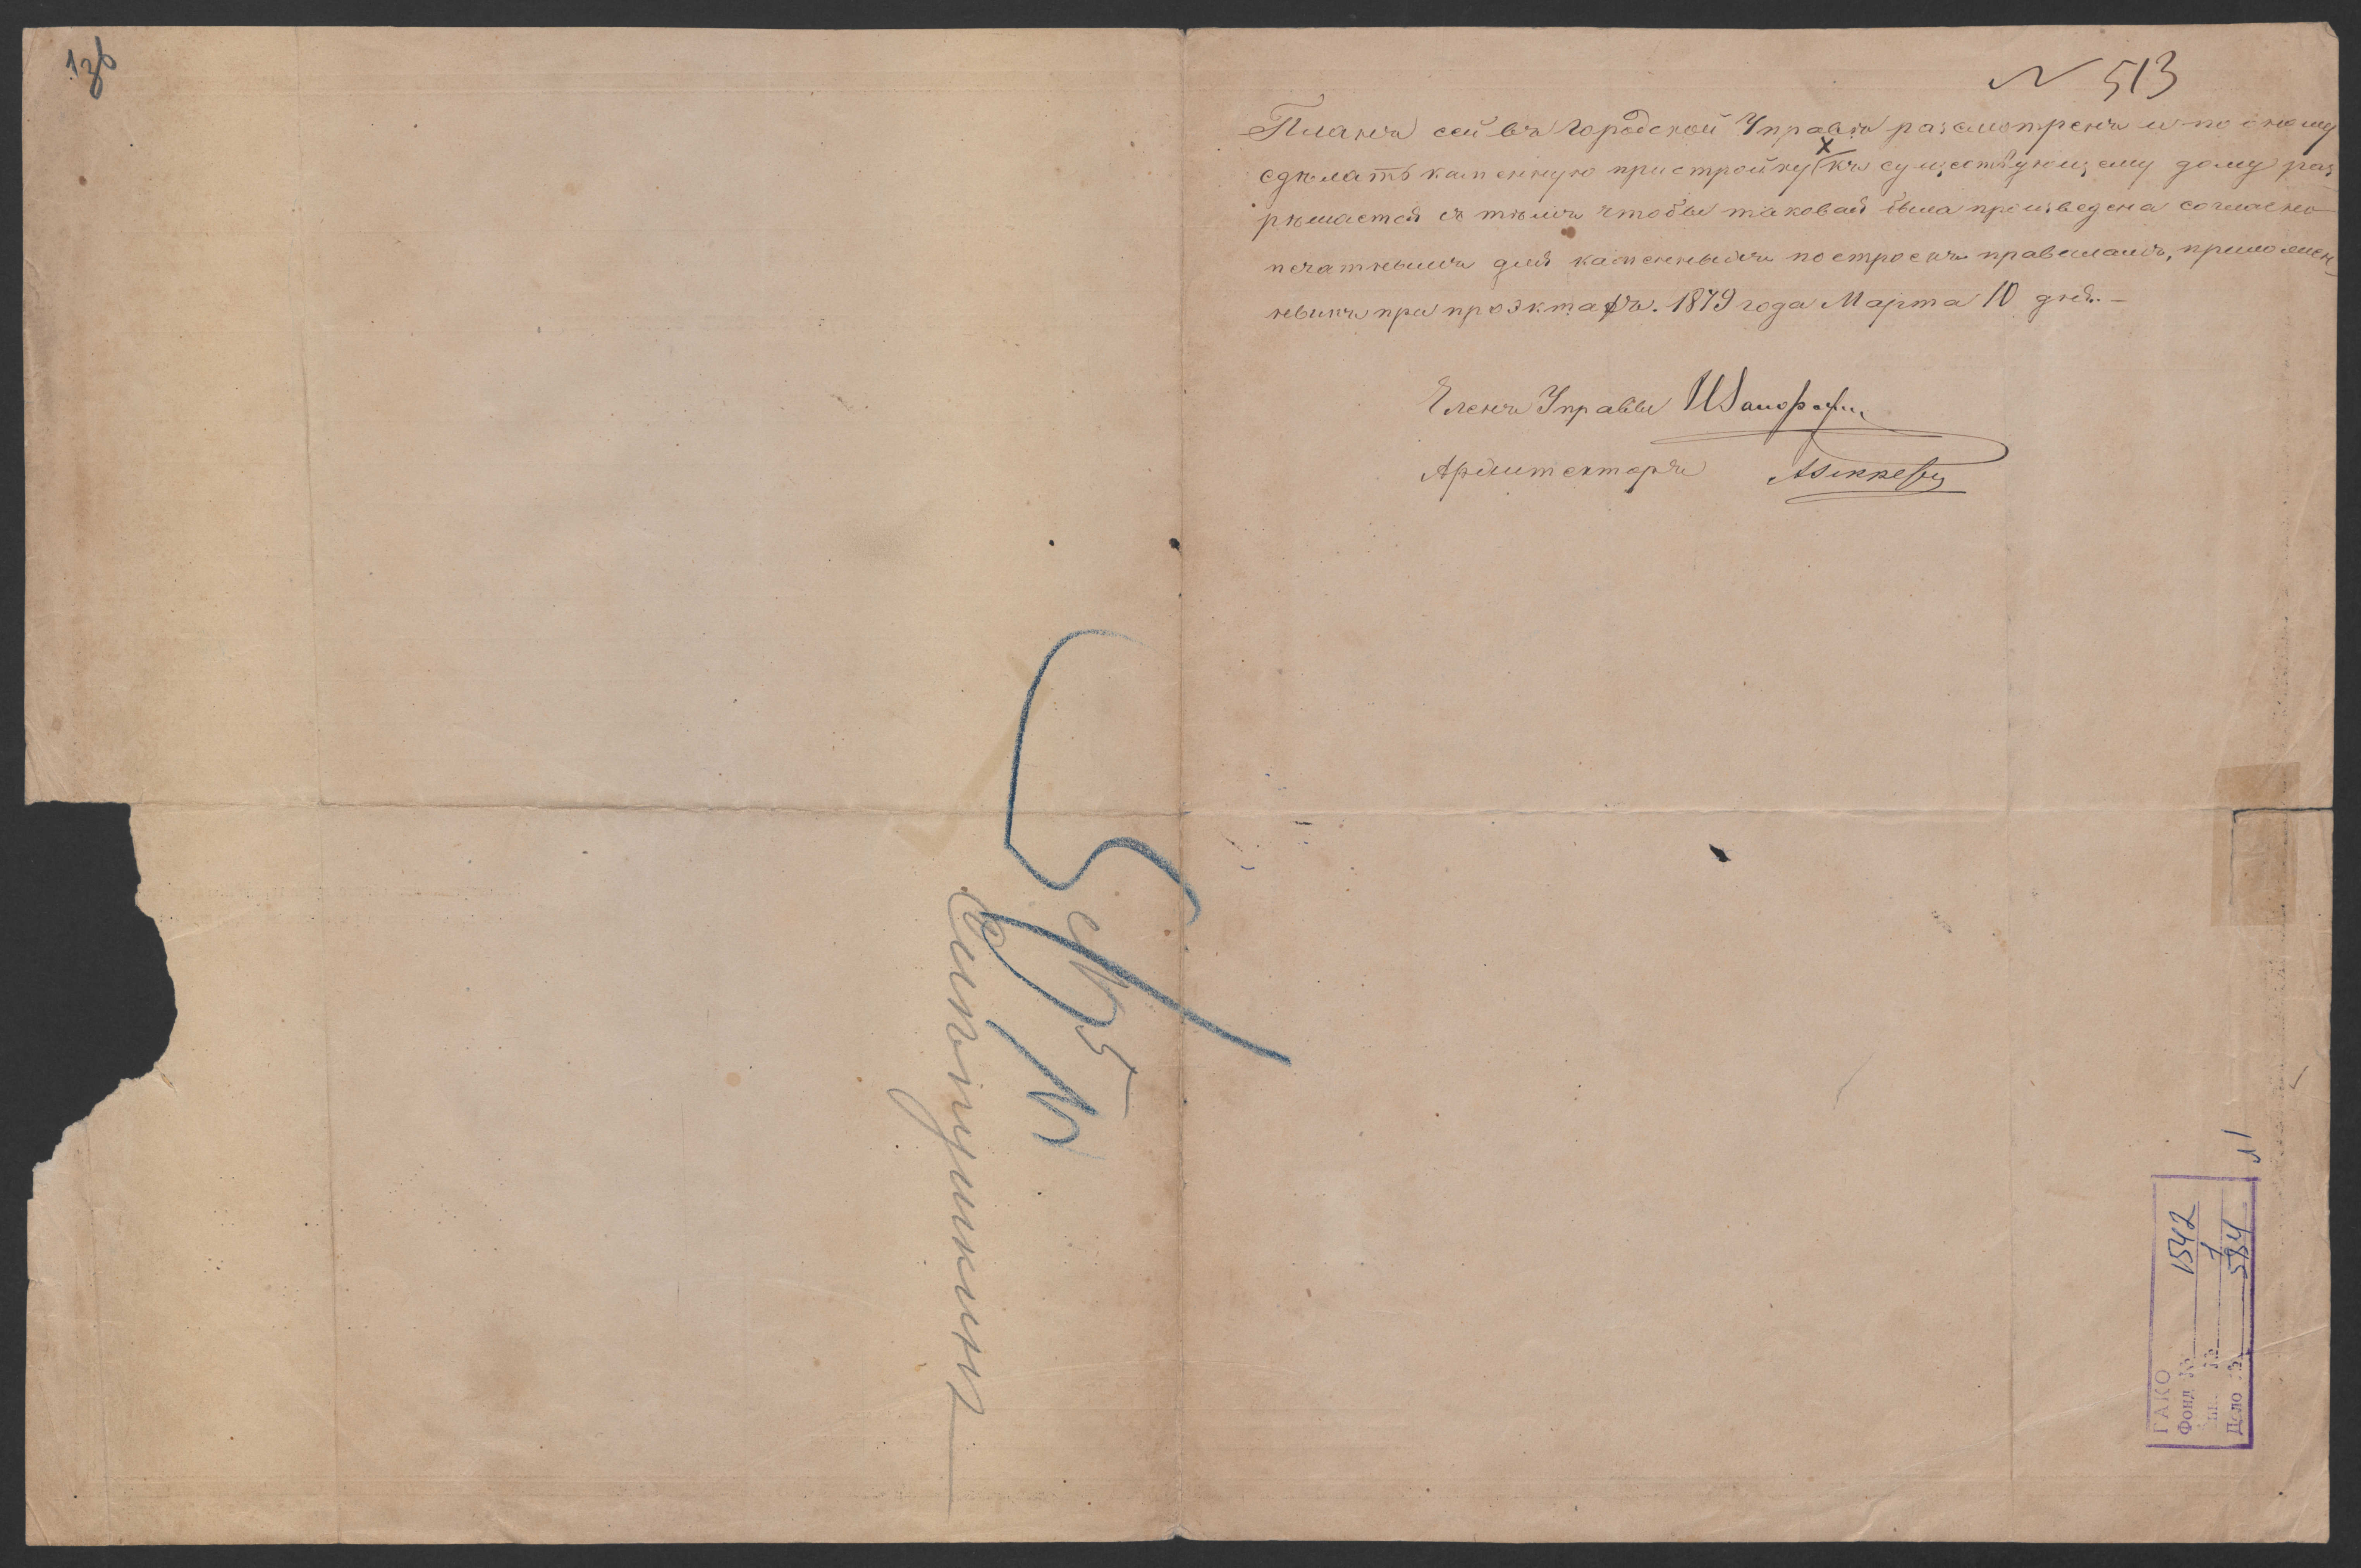 136
N 513
Планъ сей въ Городской Управѣ разсмотренъ и по оному
сдѣлать каменную пристройку къ существующему дому раз
рѣшается съ тѣмъ чтобы таковая была произведена согласно
печатнымъ для каменныхъ построекъ правиламъ, приложен
нымъ при проэктахъ. 1879 года Марта 10 дня. —
Членъ Управы
Архитекторъ
№ 5
л 1
ГАКО
Фонд № 1542
оп. № 1
Дело № 594